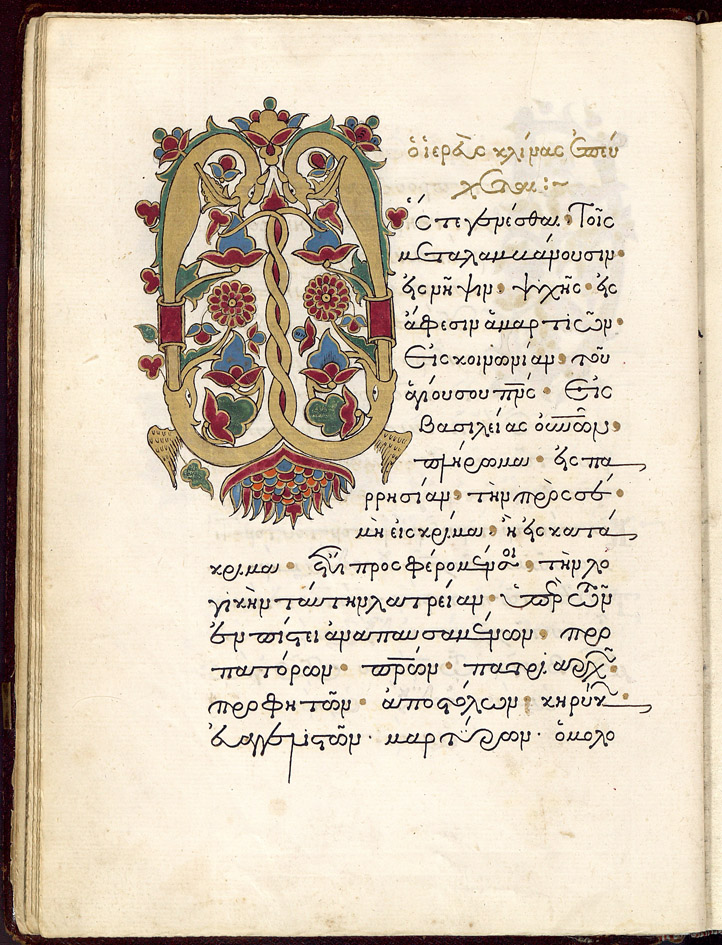 ὁ ἱερεὺς κλίνας ἐπεύ
χεται :~
Ὥστε γενέσθαι · Τοῖς
μεταλαμβάνουσιν ·
εἰς νῆψιν ψυχῆς · εἰς
ἄφεσιν ἁμαρτιῶν ·
Εἰς κοινωνίαν τοῦ
ἁγίου σου πν̅ς · Εἰς
Βασιλείας οὐν̅ῶν ·
πλήρωμα · εἰς πα
ρρησίαν τὴν πρὸς σέ ·
μὴ εἰς κρίμα · ἢ εἰς κατά
κριμα · ἔτι προσφέρομέν σοι · τὴν λο
γικὴν ταύτην λατρείαν · ὑπὲρ τῶν
ἐν πίστει ἀναπαυσαμένων · προ
πατόρων · πρ̅ων · πατριαρχ͂ ·
προφητῶν · ἀποστόλων · κηρύκ ·
εὐαγγελιστῶν · μαρτύρων · ὁμολο